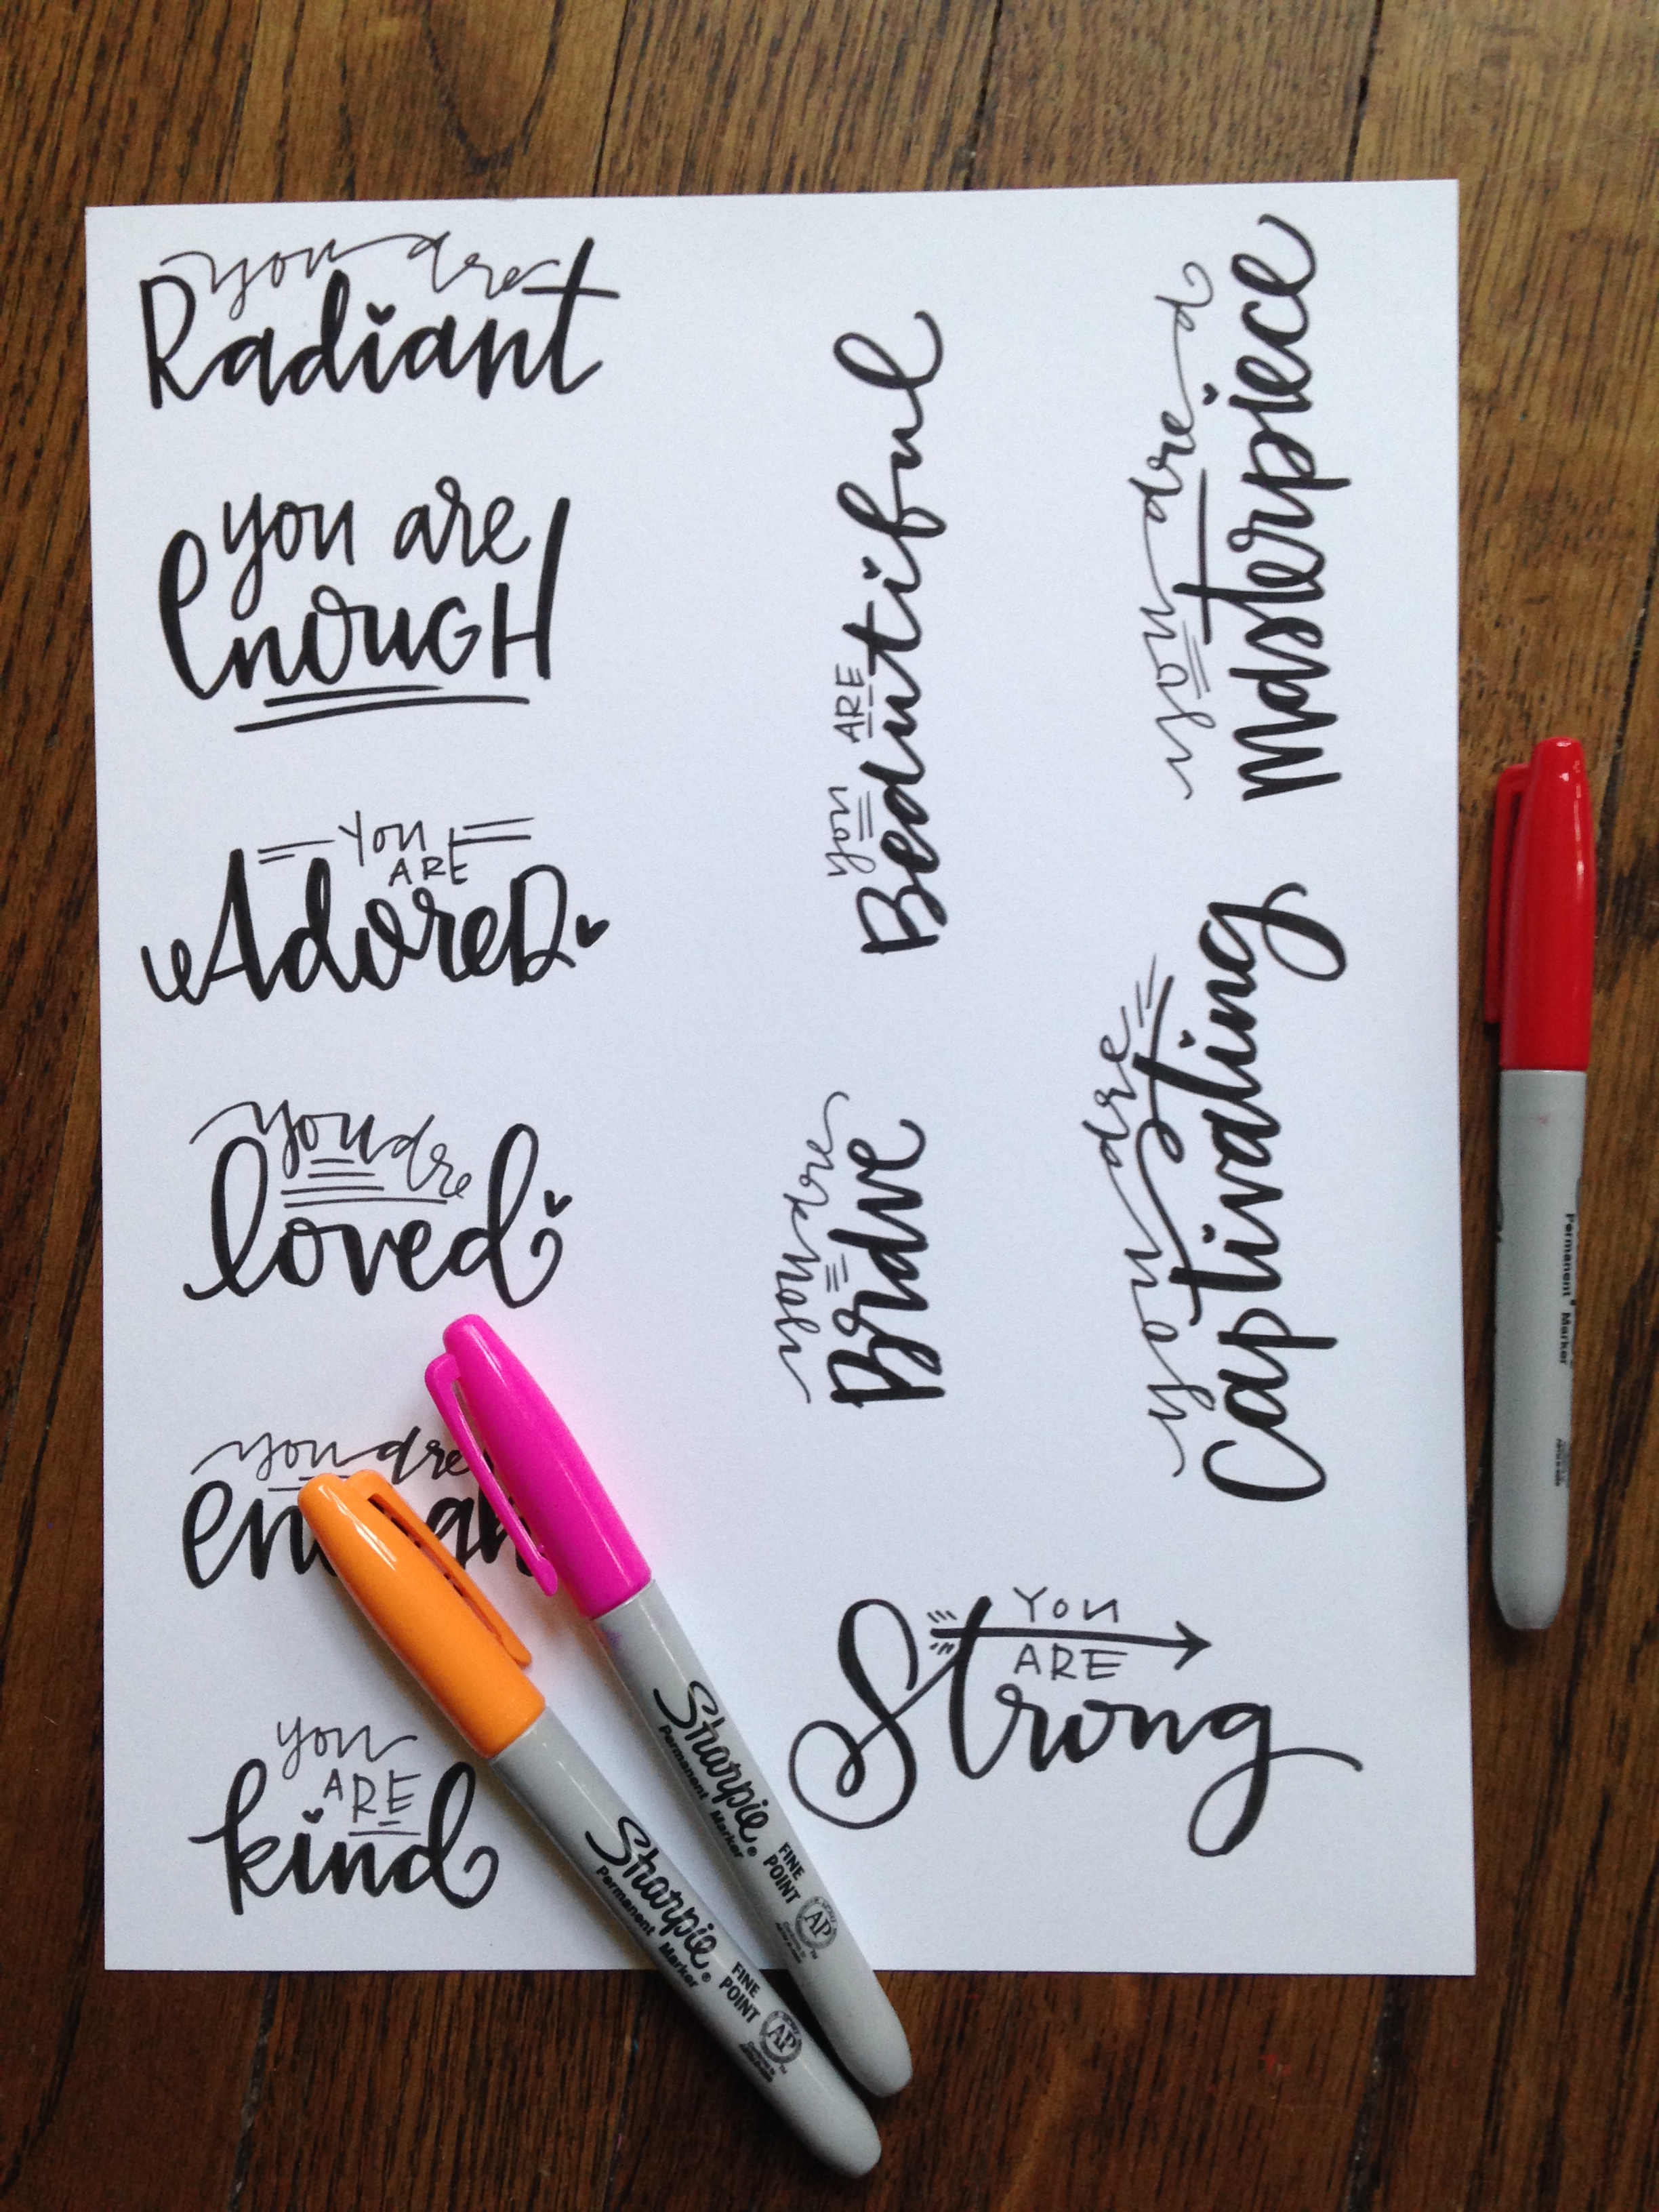 you are
Radiant
you are
enouGH
You
ARE
AdoreD
you are
loved
you are
enough
you
ARE
kind
you ARE
Beautiful
you are
Brave
you are a
masterpiece
you are
Captivating
You
ARE
Strong
Sharpie®
Permanent Marker
FINE
POINT
AP
Sharpie®
Permanent Marker
FINE
POINT
AP
Permanent Marker